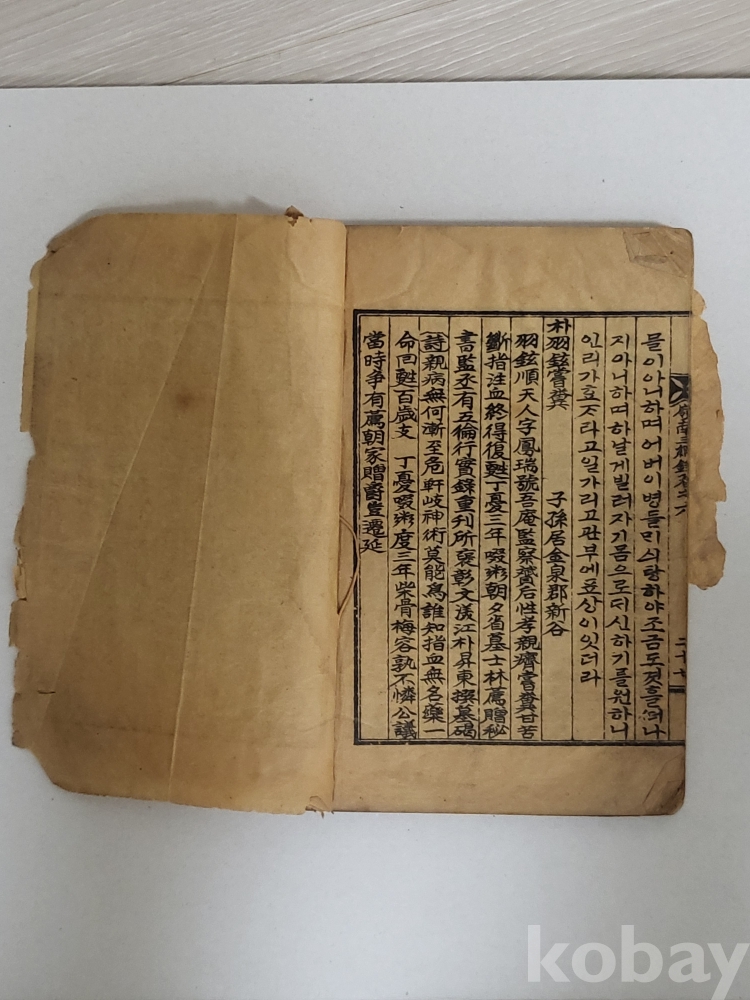 믈이아니하며어버이병들미식탕하야조금도젓흘여나
지아니하며하날게빌러자기몸으로데신하기를원하니
인리가효자라고일가리고판부에표상이잇더라
朴羽鉉嘗糞 子孫居金泉郡新谷
羽鉉順天人字鳳瑞號吾庵監察賚后性孝親癠嘗糞甘苦
斷指注血終得復甦丁憂三年啜粥朝夕省墓士林薦贈秘
書監丞有五倫行實錄重刊所褒彰文漢江朴昇東撰墓碣
(詩)親病無何漸至危軒岐神術莫能爲誰知指血無名藥一
命回甦百歲支 丁憂啜粥度三年柴骨梅容孰不憐公議
當時争有薦朝家贈爵豈遷延
嶺南三綱錄卷之六
二十七
kobay